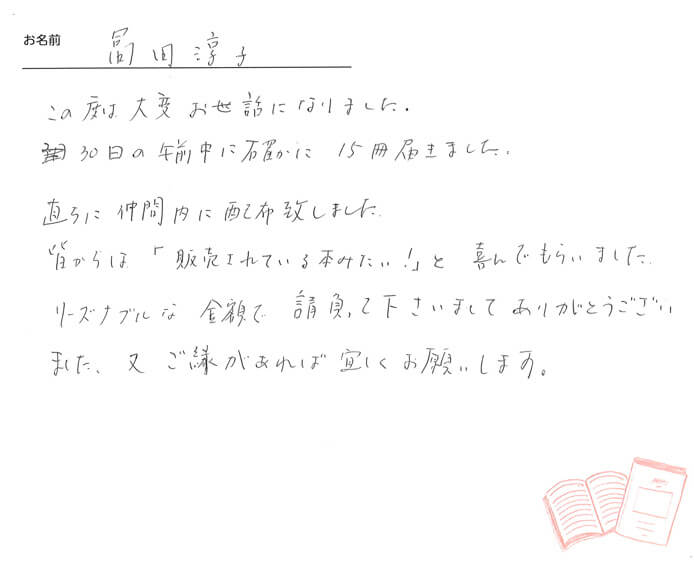 お名前 冨田淳子
この度は大変お世話になりました.
30日の午前中に確かに 15冊届きました.
直ちに仲間内に配布致しました.
皆からは「販売されている本みたい!」と 喜んでもらいました.
リーズナブルな 金額で 請負って下さいまして ありがとうござい
ました、又ご縁があれば宜しくお願いします。